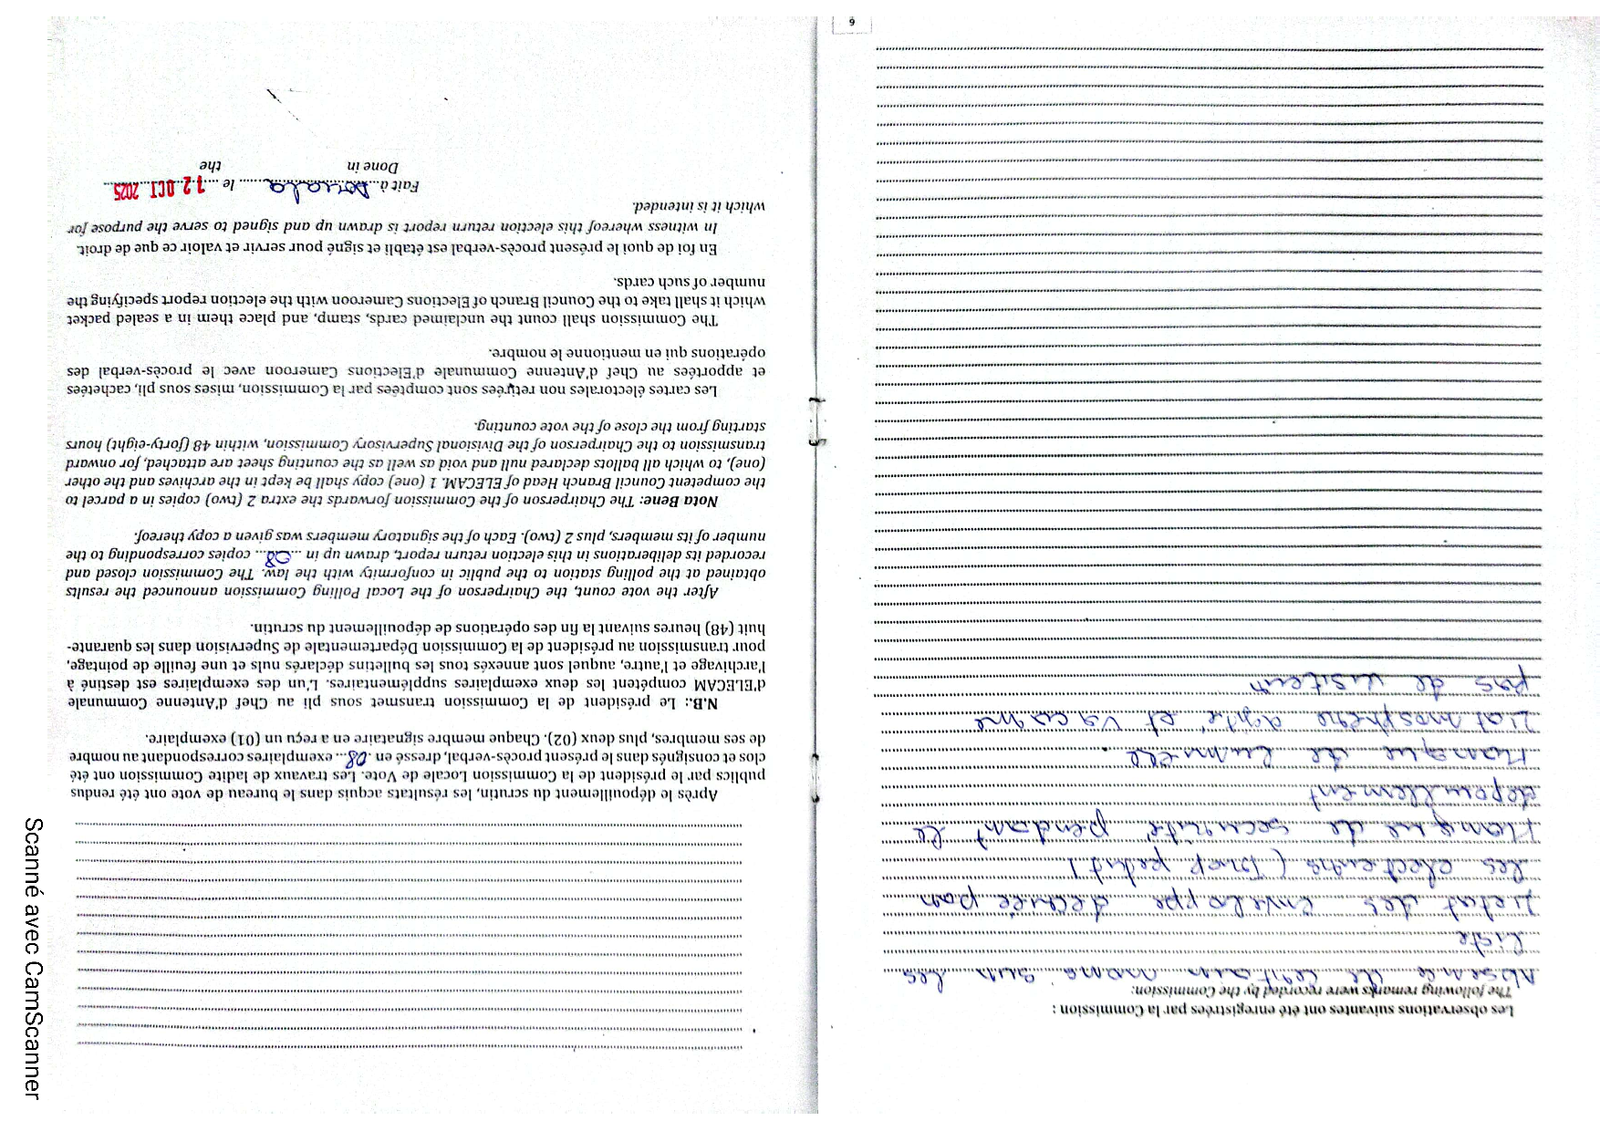 Les observations suivantes ont été enregistrées par la Commission :
The following remarks were recorded by the Commission:
Absence de certain noms sur les
liste
L'etat des enveloppe decriée par
les electeurs (trop petit)
Manque de securité pendant le
depouillement
Manque de lumiere.
L'atmosphere agité et vacarme
pas de visiteur
6
Après le dépouillement du scrutin, les résultats acquis dans le bureau de vote ont été rendus
publics par le président de la Commission Locale de Vote. Les travaux de ladite Commission ont été
clos et consignés dans le présent procès-verbal, dressé en ..08... exemplaires correspondant au nombre
de ses membres, plus deux (02). Chaque membre signataire en a reçu un (01) exemplaire.
N.B.: Le président de la Commission transmet sous pli au Chef d'Antenne Communale
d'ELECAM compétent les deux exemplaires supplémentaires. L'un des exemplaires est destiné à
l'archivage et l'autre, auquel sont annexés tous les bulletins déclarés nuls et une feuille de pointage,
pour transmission au président de la Commission Départementale de Supervision dans les quarante-
huit (48) heures suivant la fin des opérations de dépouillement du scrutin.
After the vote count, the Chairperson of the Local Polling Commission announced the results
obtained at the polling station to the public in conformity with the law. The Commission closed and
recorded its deliberations in this election return report, drawn up in ...08... copies corresponding to the
number of its members, plus 2 (two). Each of the signatory members was given a copy thereof.
Nota Bene: The Chairperson of the Commission forwards the extra 2 (two) copies in a parcel to
the competent Council Branch Head of ELECAM. 1 (one) copy shall be kept in the archives and the other
(one), to which all ballots declared null and void as well as the counting sheet are attached, for onward
transmission to the Chairperson of the Divisional Supervisory Commission, within 48 (forty-eight) hours
starting from the close of the vote counting.
Les cartes électorales non retirées sont comptées par la Commission, mises sous pli, cachetées
et apportées au Chef d'Antenne Communale d'Elections Cameroon avec le procès-verbal des
opérations qui en mentionne le nombre.
The Commission shall count the unclaimed cards, stamp, and place them in a sealed packet
which it shall take to the Council Branch of Elections Cameroon with the election report specifying the
number of such cards.
En foi de quoi le présent procès-verbal est établi et signé pour servir et valoir ce que de droit.
In witness whereof this election return report is drawn up and signed to serve the purpose for
which it is intended.
Fait à Douala le 12 OCT 2025
Done in the
Scanné avec CamScanner